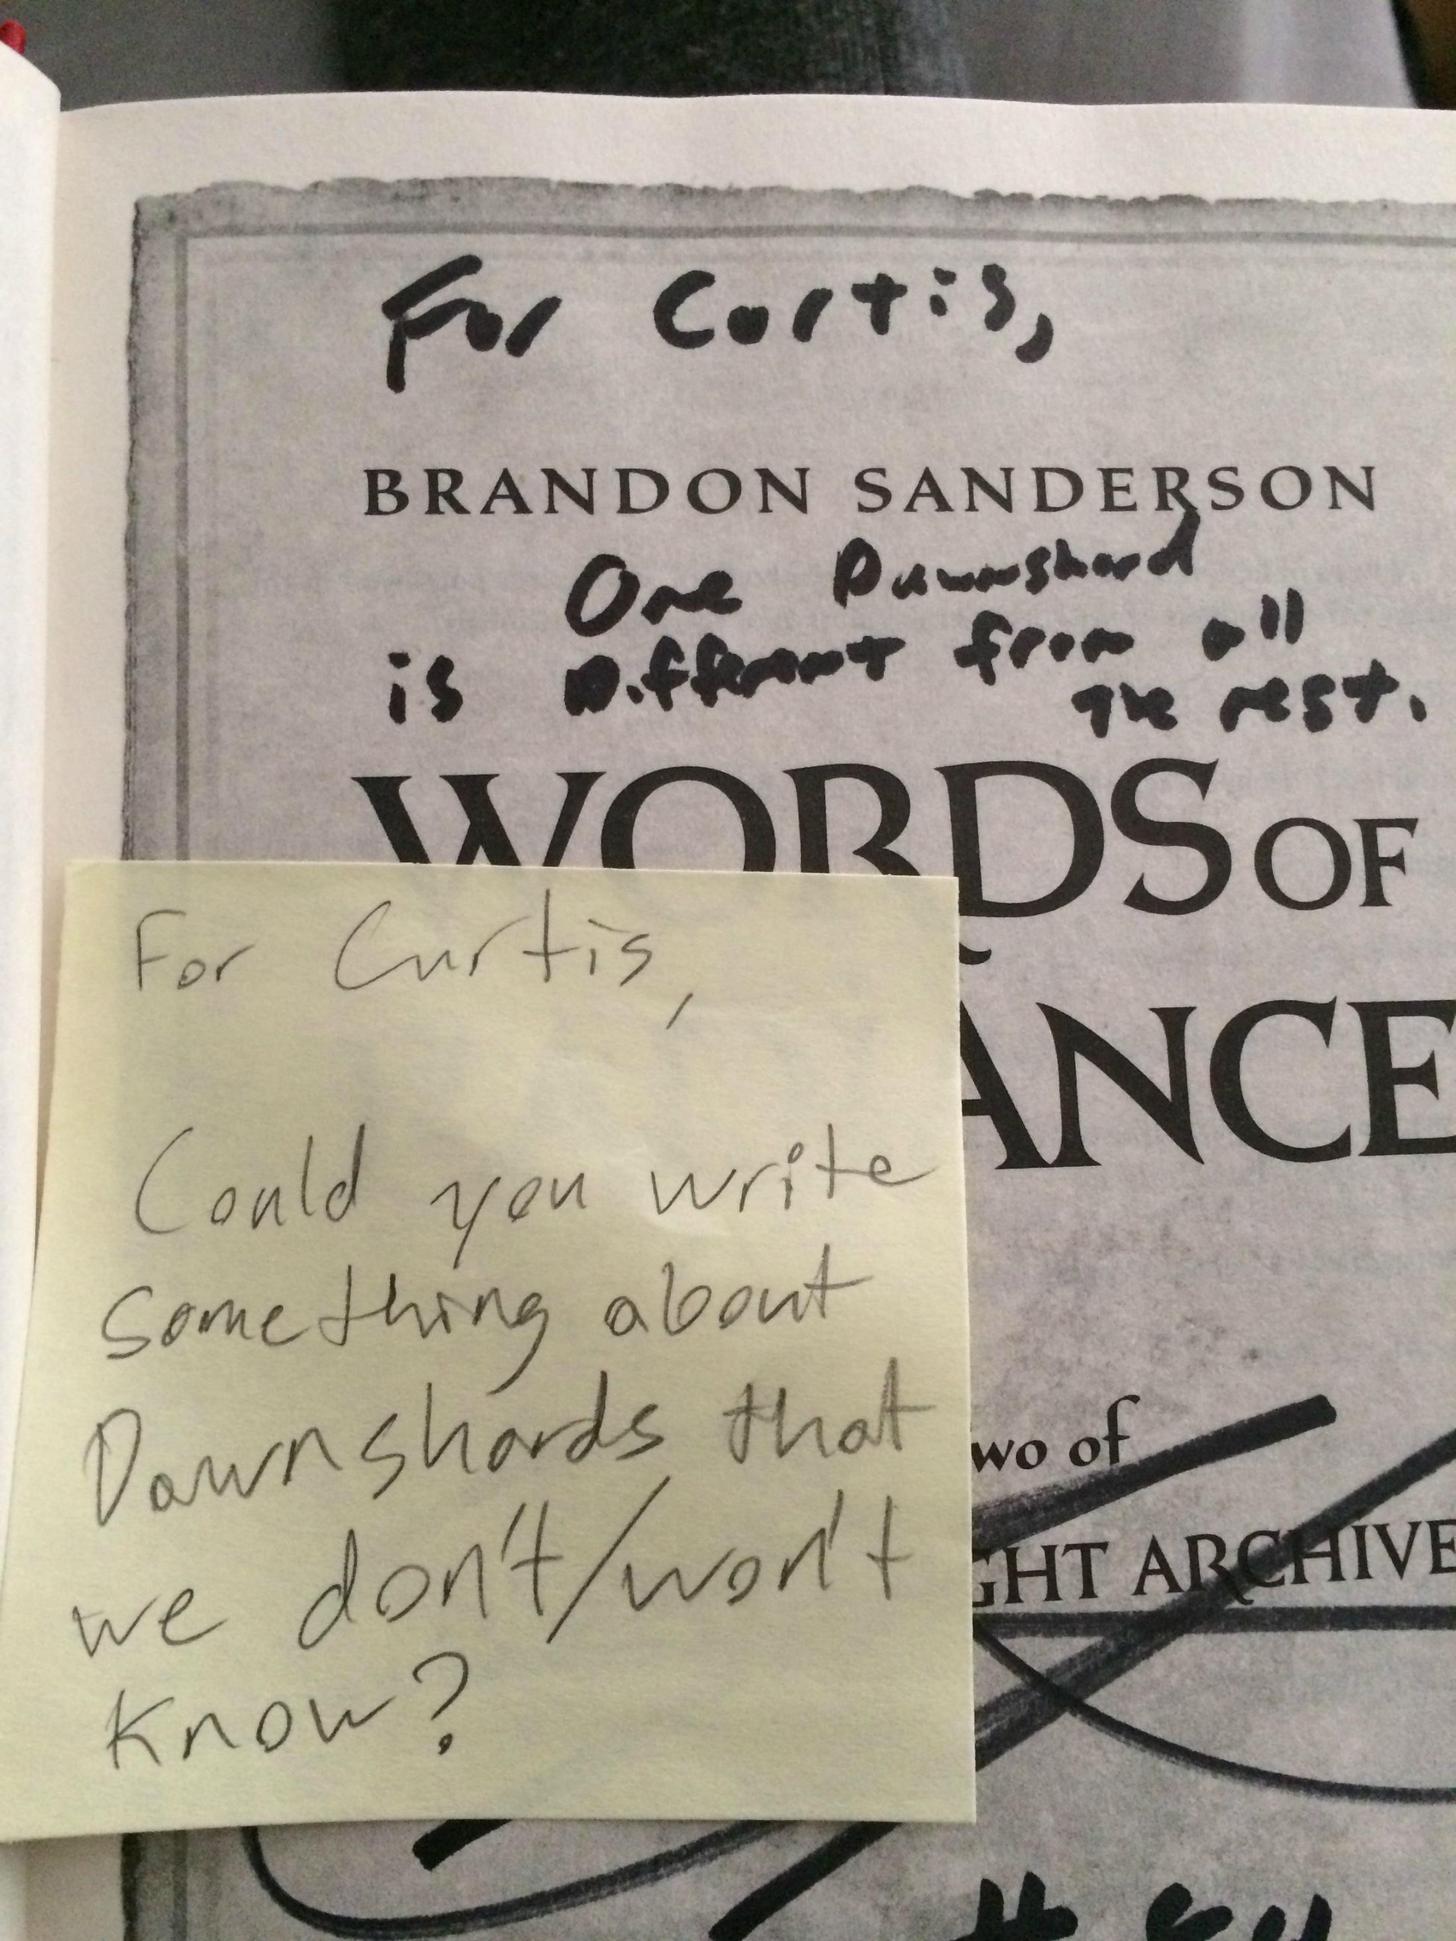 For Curtis,
BRANDON SANDERSON
One Dawnshard
is Different from all
the rest.
WORDS OF
ANCE
For Curtis,
Could you write
something about
Dawnshards that
we don't/won't
know?
wo of
GHT ARCHIVE